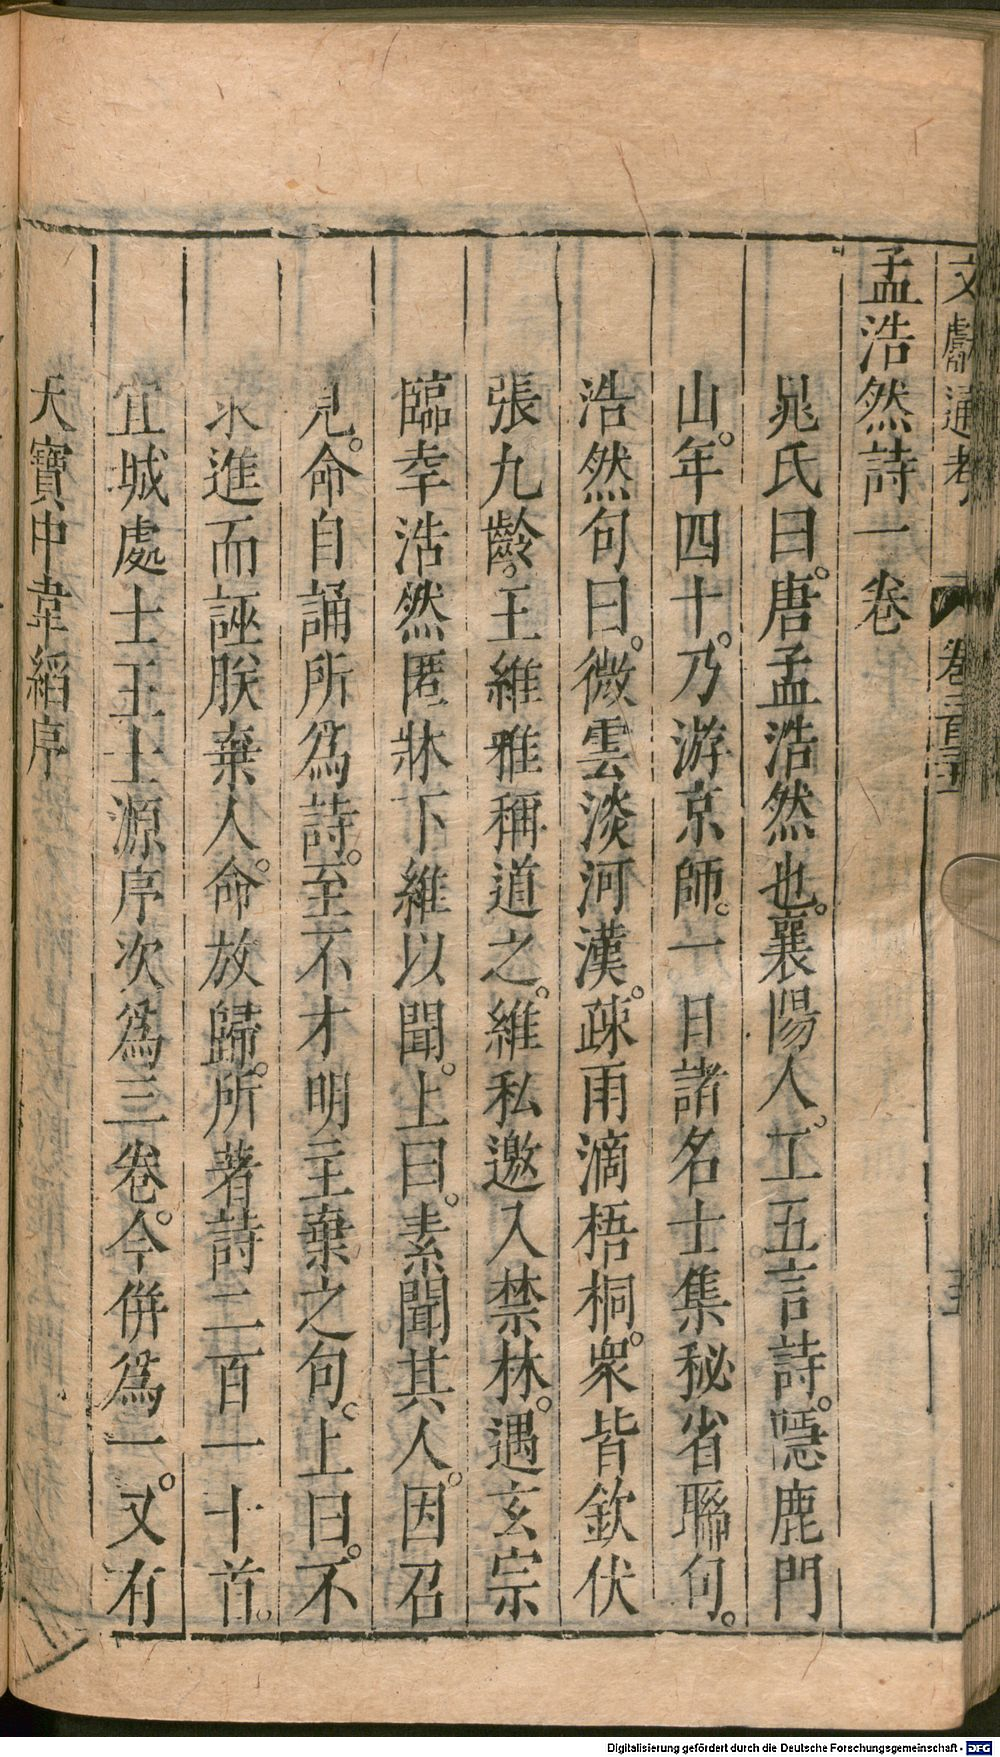 文獻通考 卷二百三
孟浩然詩一卷
晁氏曰。唐孟浩然也。襄陽人。工五言詩。隱鹿門
山。年四十。乃游京師。一日諸名士集秘省聮句。
浩然句曰。微雲淡河漢。疎雨滴梧桐。衆皆欽伏
張九齡。王維雅稱道之。維私邀入禁林。遇玄宗
臨幸浩然匿牀下維以聞。上曰。素聞其人。因召
見。命自誦所爲詩。至不才明主棄之句。上曰。不
求進而誣朕棄人。命放歸。所著詩二百一十首。
宜城處士王士源序次爲三卷。今併爲一。又有
天寶中韋縚序
Digitalisierung gefördert durch die Deutsche Forschungsgemeinschaft - DFG